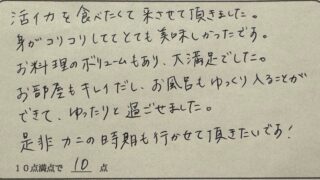 活イカを食べたくて来させて頂きました。
身がコリコリしててとても美味しかったです。
お料理のボリュームもあり、大満足でした。
お部屋もキレイだし、お風呂もゆっくり入ることが
できて、ゆったりと過ごせました。
是非カニの時期も行かせて頂きたいです!
10点満点で 10 点